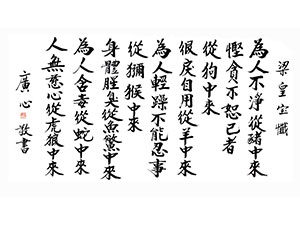 梁皇宝懺
為人不淨從豬中來
慳貪不恕己者
從狗中來
狠戾自用從羊中來
為人輕躁不能忍事
從獼猴中來
身體腥臭從魚鱉中來
為人含毒從蛇中來
人無慈心從虎狼中來
廣心 敬書